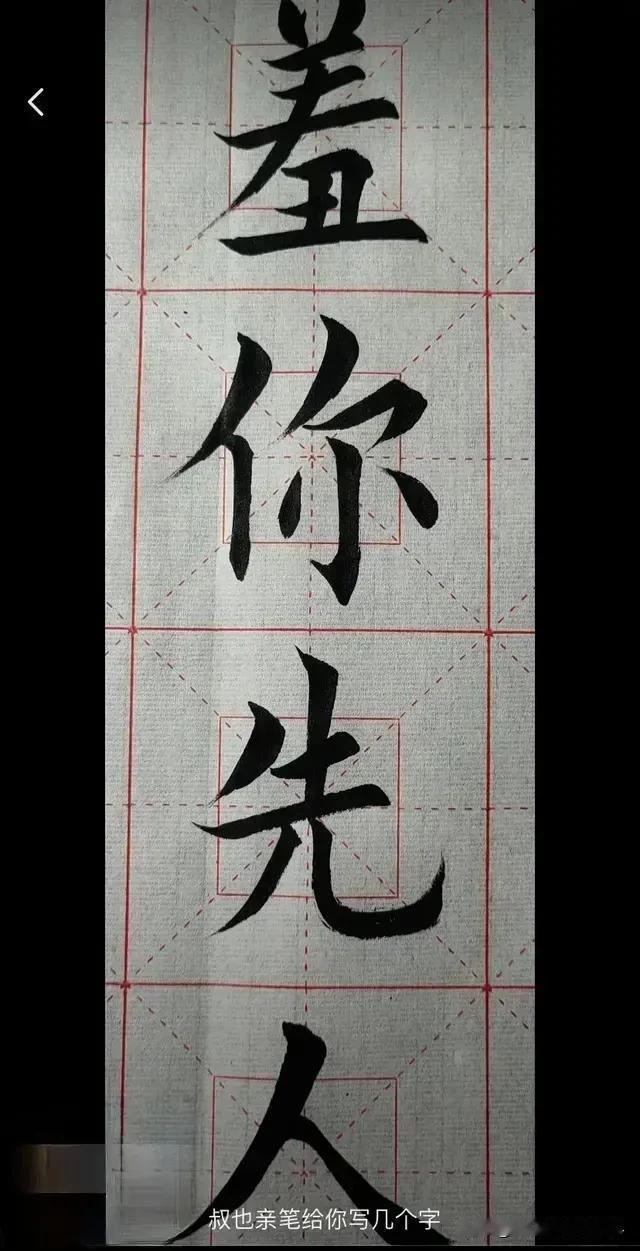 羞你先人
叔也亲笔给你写几个字